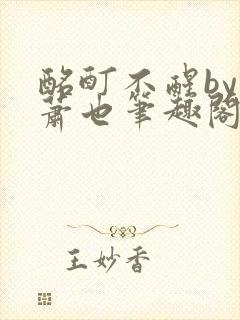 酩酊不醒by
萧也笔趣阁
王妙香